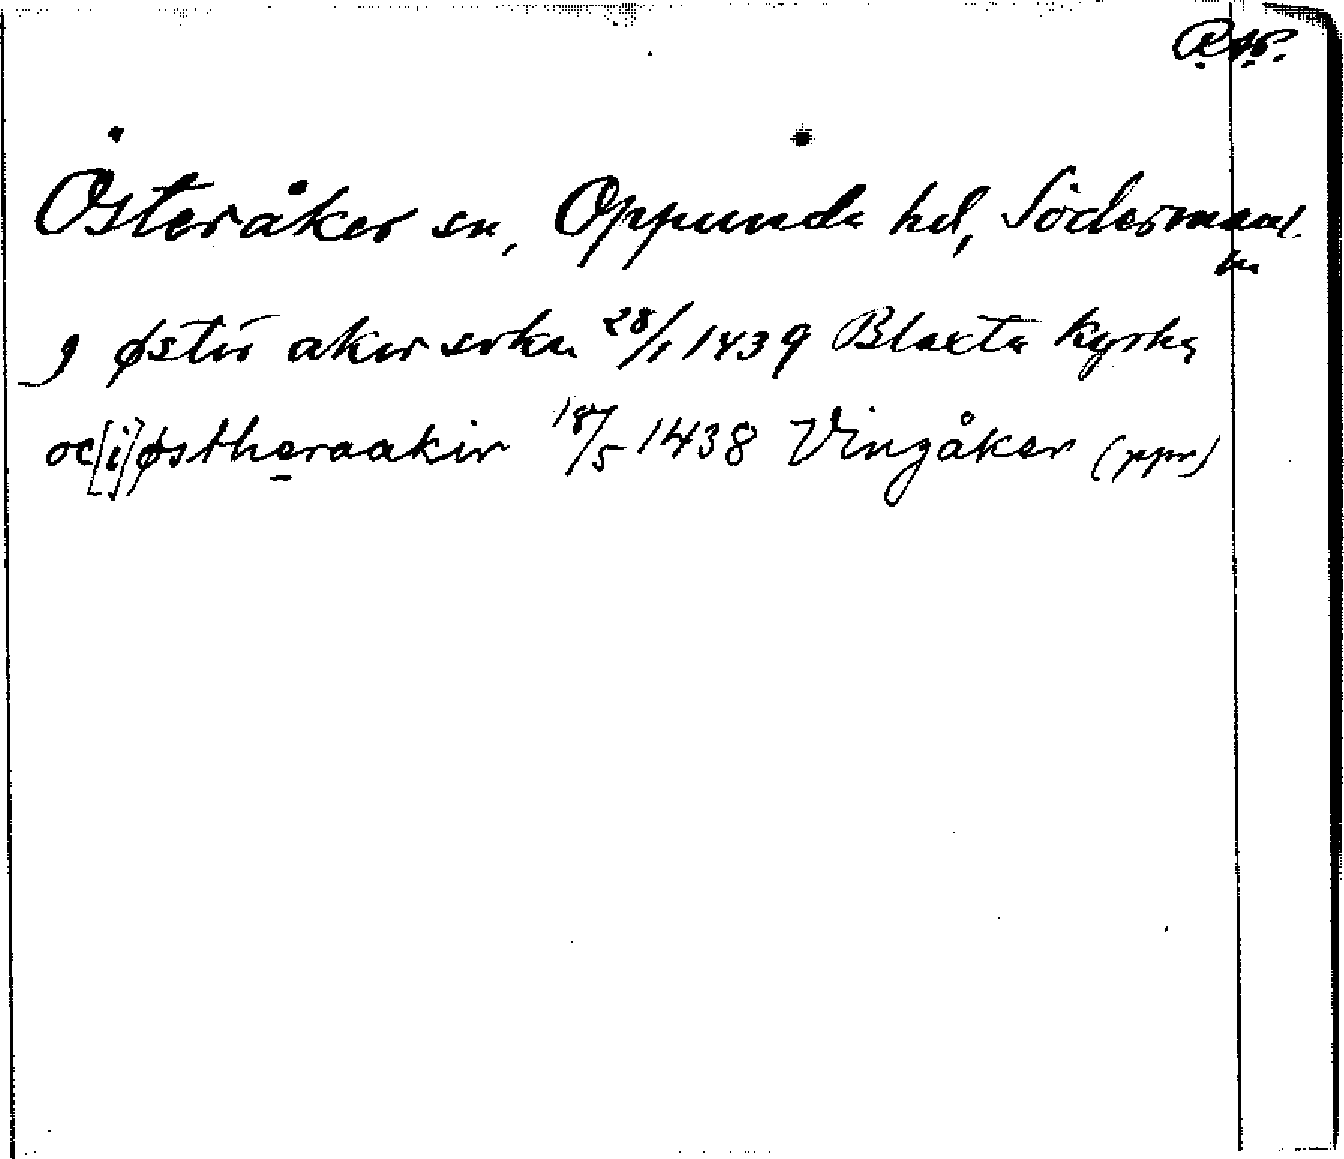 Österåker sn, Oppunda hd, Södermanl.
ln
J østir akir sokn 28/1 1439 Blaxta kyrka
oc [i] østheraakir 18/5 1438 Vingåker (ppr)